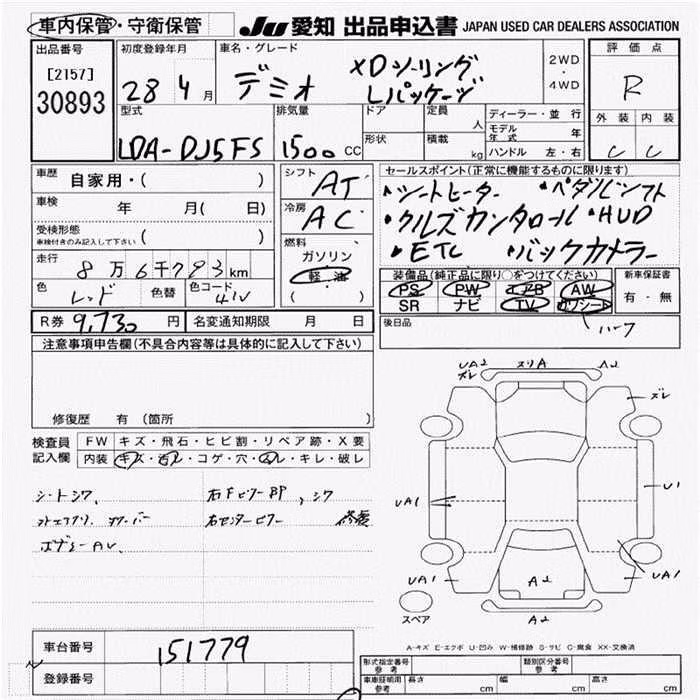 車内保管・守衛保管 JU 愛知 出品申込書 JAPAN USED CAR DEALERS ASSOCIATION
出品番号 初度登録年月 車名・グレード 2WD・4WD 評価点
[2157] 28 4月 デミオ XDツーリング R
30893 Lパッケージ
型式 排気量 ドア 定員 人 ディーラー・並行 外装 内装
モデル年式 年
LDA-DJ5FS 1500cc 形状 積載 kg ハンドル 左・右 C C
車歴 自家用・( ) シフト AT セールスポイント(正常に機能するものに限ります)
車検 年 月( 日) 冷房 AC ・シートヒーター ・パドルシフト
受検形態 ( ) ・クルズカンタロール ・HUD
車検付きのみ記入して下さい
燃料 ガソリン ・ETC ・バックカメラー
走行 8万6千793km 軽・油
( )
装備品(純正品に限り○をつけてください) 新車保証書
色 レッド 色替 色コード 41V PS PW エアB AW 有・無
SR ナビ TV カワシート
R券 9,730円 名変通知期限 月 日 後日品 ハーフ
注意事項申告欄(不具合内容等は具体的に記入して下さい)
修復歴 有(箇所 )
検査員記入欄 FW キズ・飛石・ヒビ割・リペア跡・X要
内装 キズ・汚レ・コゲ・穴・スレ・キレ・破レ
シートシワ、 右Fピラー , シワ
右センターピラー 修復
ボデー AU、
UA2 スリA A2
ズレ
ズレ
UA1
U1
UA1
A2
UA1
スペア
A2
A-キズ E-エクボ U-凹み W-補修跡 S-サビ C-腐食 XX-交換済
車台番号 151779
登録番号
型式指定番号 参考 類別区分番号 参考
車車証明用 参考 長さ cm 幅 cm 高さ cm